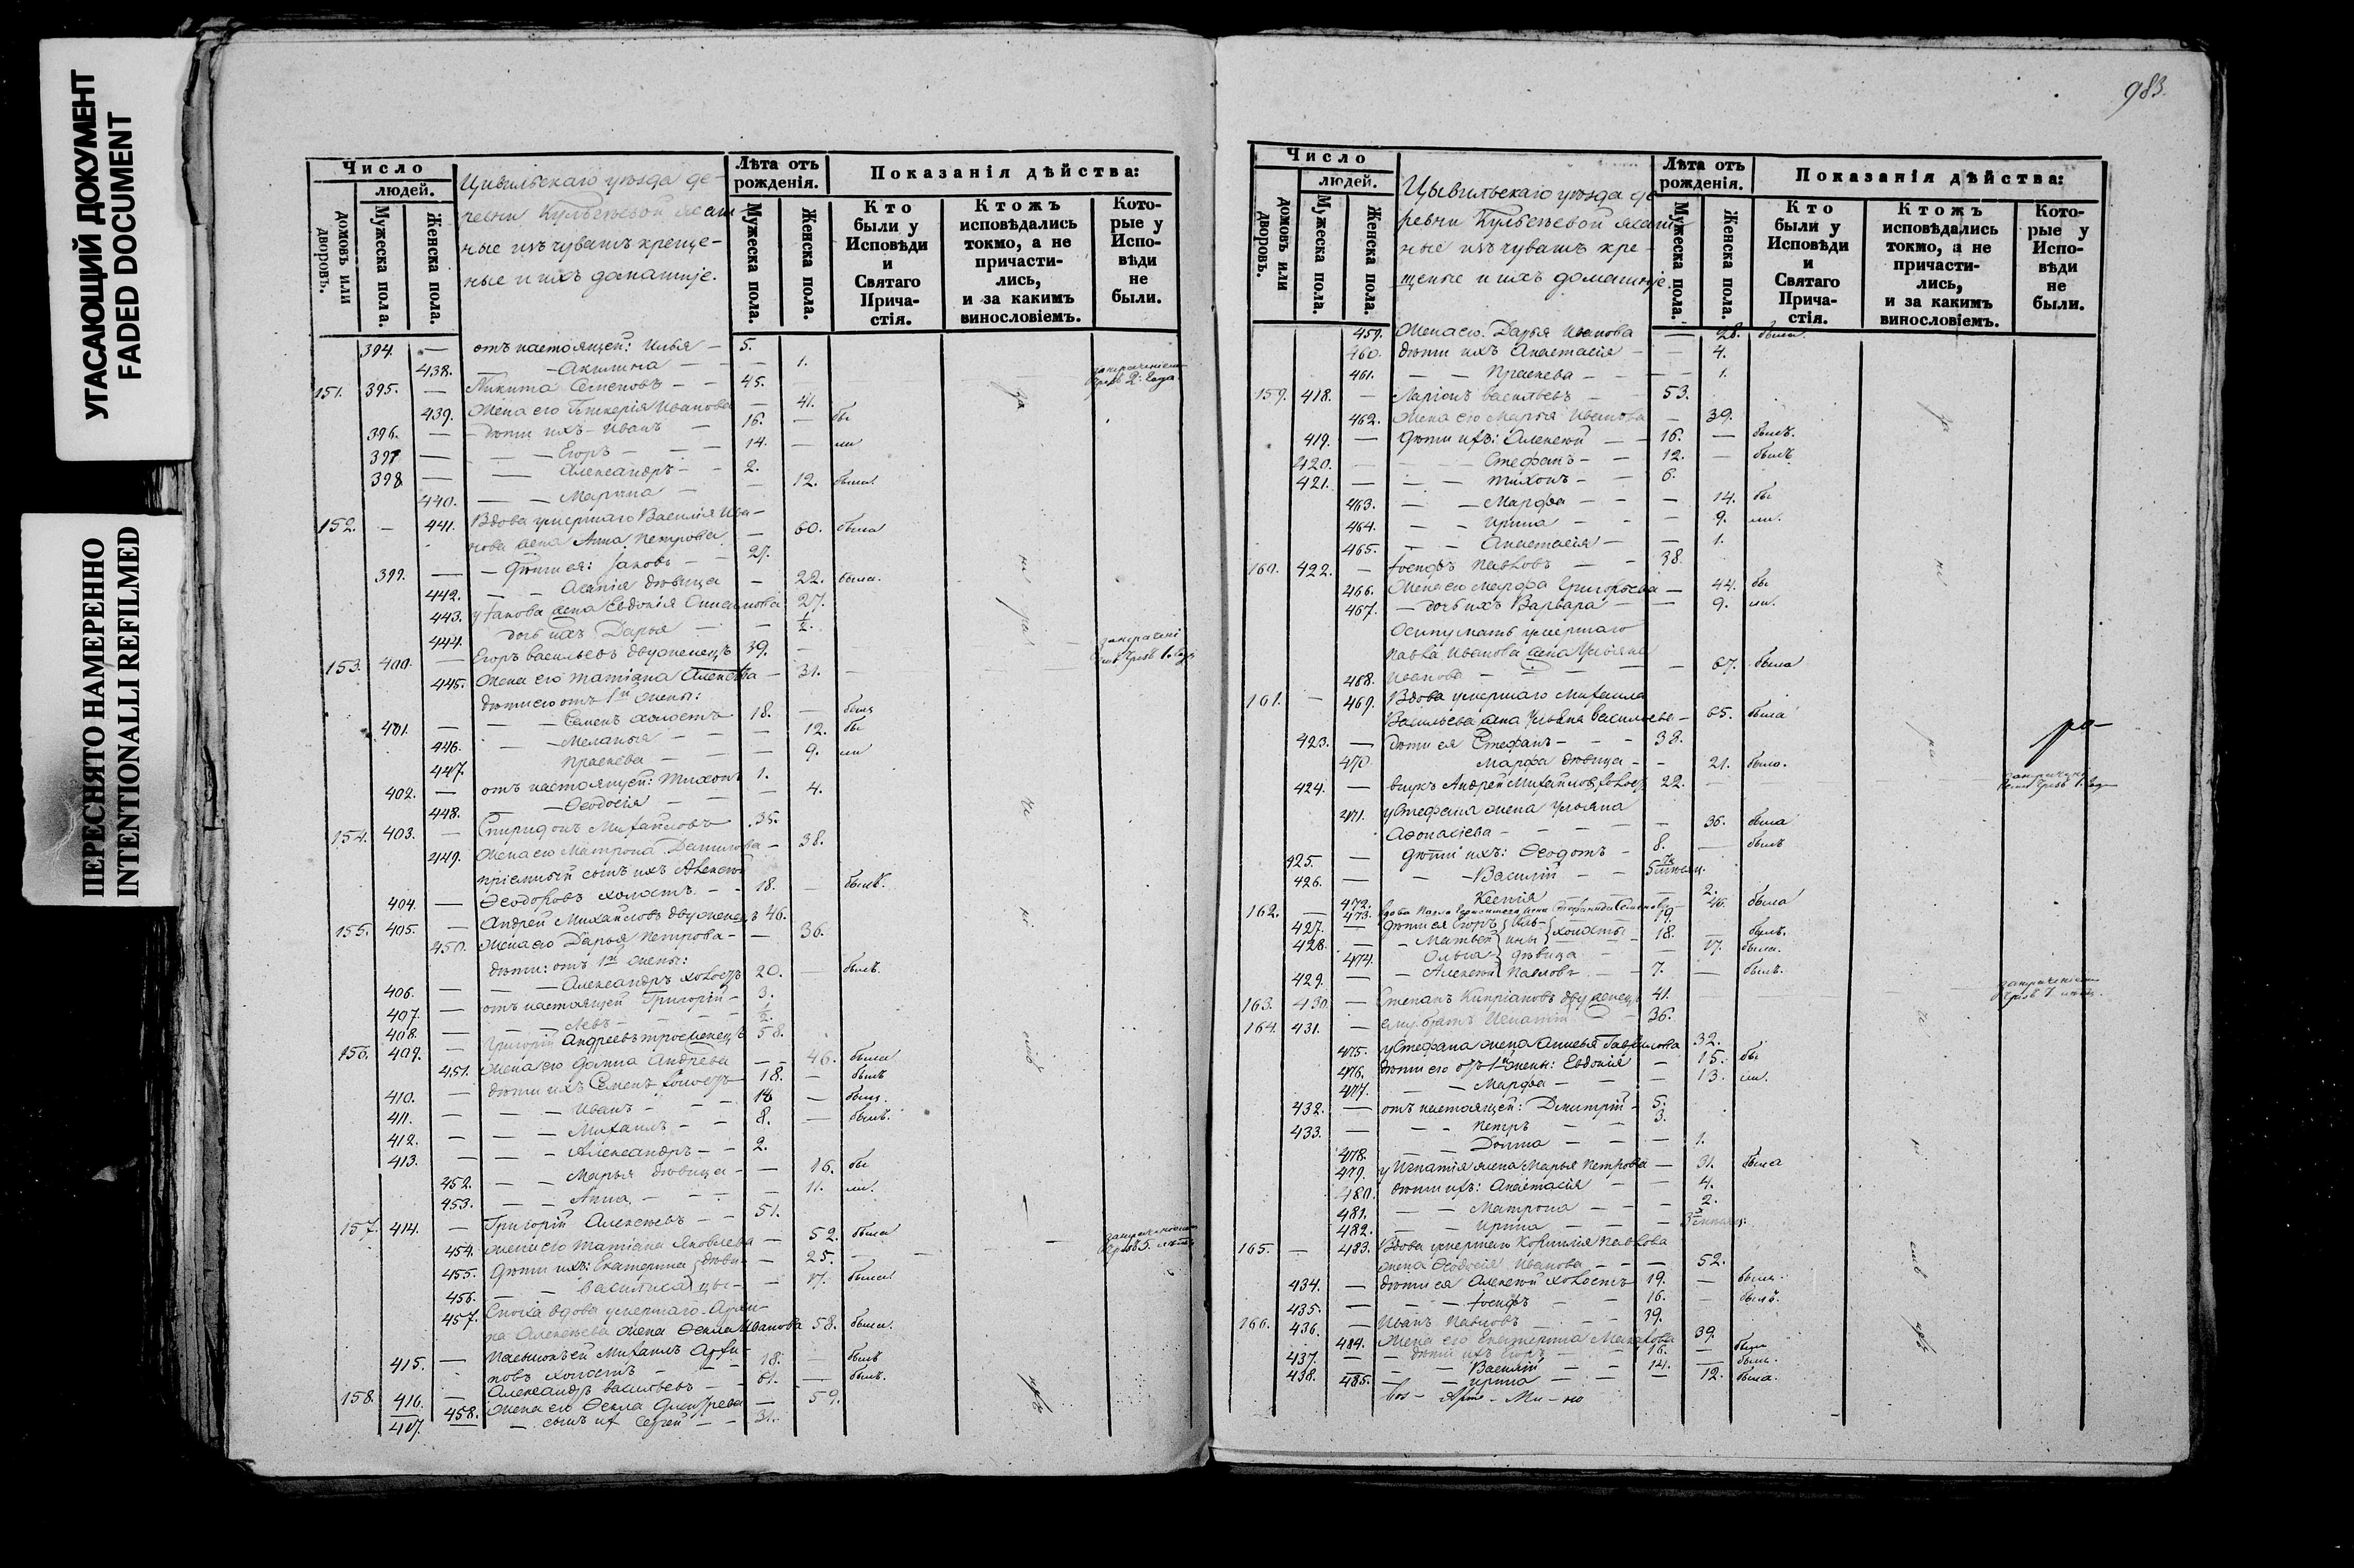 УГАСАЮЩИЙ ДОКУМЕНТ
FADED DOCUMENT
ПЕРЕСНЯТО НАМЕРЕННО
INTENTIONALLI REFILMED
Число
людей.
домовъ или дворовъ.
Мужеска пола.
Женска пола.
Цивильскаго уѣзда де-
ревни Кульгешевой ясаш-
ные изъ чувашъ креще-
ные и ихъ домашніе.
Лѣта отъ рожденія.
Мужеска пола.
Женска пола.
Показанія дѣйства:
Кто были у Исповѣди и Святаго Прича-стія.
Ктожъ исповѣдались токмо, а не причасти-лись, и за какимъ винословіемъ.
Кото-рые у Испо-вѣди не были.
394. — отъ настоящей: Илья — 5.
438. — Акилина — 1.
151. 395. — Никита Семеновъ — 45.
439. Жена его Гликерія Иванова — 41.
396. — дѣти ихъ — Иванъ — 16. — бы
397 — Егоръ — 14. — ли
398 — Александръ — 2.
440. — Марина — 12. была
152. — 441. Вдова умершаго Василія Ива-
нова жена Анна Петрова — 60. была
399. — дѣти ея: Іаковъ — 27.
442. — дѣвица — 22. была.
443. у Іакова жена Евдокія 27.
444. дочь ихъ Дарья — ½.
153. 400. — Егоръ Васильевъ двуженецъ 39.
445. Жена его Татіана Алексѣева — 31.
дѣти его отъ 1й жены:
401. — Семенъ холостъ 18. — былъ
446. — Меланья — 12. бы
447. Праскева — 9. ли
402. — отъ настоящей: Тихонъ 1.
448. — Ѳеодосія — 4.
154. 403. — Спиридонъ Михайловъ 35.
449. Жена его Матрона Данилова — 38.
пріемный сынъ ихъ Алексѣй
404. — Ѳеодоровъ холостъ — 18. — былъ.
155. 405. — Андрей Михайловъ двуженецъ 46.
450. Жена его Дарья Петрова — 36.
дѣти: отъ 1й жены:
406. — Александръ холостъ 20. — былъ.
407. — отъ настоящей Григорій — 3.
408. — Левъ — ½.
156. 409. — Григорій Андреевъ троеженецъ 58.
451. Жена его Домна Андреева — 46. была
410. — дѣти ихъ Семенъ холостъ 18. — былъ
411. — Иванъ — 14 — былъ.
412. — Михаилъ — 8. — былъ.
413. — Александръ — 2.
452. — Марья дѣвица — 16. бы
453. — Анна — 11. ли.
157. 414. — Григорій Алексѣевъ — 51.
454. жена его Татіана Яковлева — 52. была
455. Дѣти ихъ: Екатерина дѣви- — 25.
456. — Василиса цы — 17. была.
457. Сноха вдова умершаго Архи-
па Алексѣева жена Ѳекла Иванова 58. была.
415. — Племянъ ей Михаилъ Архи-
повъ холостъ — 18. — былъ
158. 416. — Александръ Васильевъ — 61. — былъ.
458. Жена его Ѳекла Дмитріева — 59.
417. — сынъ их Сергѣй — 31.
983.
Число
людей.
домовъ или дворовъ.
Мужеска пола.
Женска пола.
Цывильскаго уѣзда де
ревни Кульгешевой ясаш
ные изъ чувашъ кре-
щеные и ихъ домашніе.
Лѣта отъ рожденія.
Мужеска пола.
Женска пола.
Показанія дѣйства:
Кто были у Исповѣди и Святаго Прича-стія.
Ктожъ исповѣдались токмо, а не причасти-лись, и за какимъ винословіемъ.
Кото-рые у Испо-вѣди не были.
459. Жена его Дарья Иванова — 28. была.
460. дѣти ихъ Анастасія — 4.
461. — Праскева — 1.
159. 418. — Ларіонъ Васильевъ — 53.
462. Жена его Марья Иванова — 39.
419. — Дѣти ихъ: Алексѣй — 16. — былъ.
420. — Стефанъ — 12. — былъ
421. — Тихонъ — 6.
463. — Марфа — 14. бы
464. — Ирина — 9. ли.
465. — Анастасія — 1.
160. 422. — Іосифъ Павловъ — 38.
466. Жена его Марфа Григорьева — 44. бы
467. — дочь ихъ Варвара — 9. ли.
Осипу мать умершаго
Павла Иванова жена Ульяна
468. Иванова — 67. была
161. — 469. Вдова умершаго Михаила
Васильева жена Ульяна Васильева — 65. была
423. — Дѣти ея Стефанъ — 38.
470 Марфа дѣвица — 21. была.
424. — внукъ Андрей Михайловъ холостъ 22.
471. у Стефана жена Ульяна
Аѳонасіева — 36. была
425. — Дѣти ихъ: Ѳеодотъ — 8. — былъ
426. — Василій — 5
472. Ксенія — 2.
162. — 473. Вдова 46. была
427. — Дѣти ея Егоръ 19.
428. — Матвей холосты 18. — былъ.
474. Ольга дѣвица — 17. была.
429. — Алексѣй Павловъ — 7. — былъ.
163. 430. — Степанъ Кипріановъ двуженецъ 41.
164. 431. — ему братъ Игнатій — 36.
475. у Стефана жена Гаврилова 32.
476. дѣти его отъ 1й жены: Евдокія — 15. бы
477. — Марфа — 13. ли.
432. — отъ настоящей: Димитрій — 5.
433. — Петръ — 3.
478. — Домна — 1.
479. у Игнатія жена Марья Петрова — 31. была
480. дѣти ихъ: Анастасія — 4.
481. — Матрона — 2.
482. — Ирина —
165. — 483. Вдова умершаго Корнилія Павлова
жена Ѳеодосія Иванова — 52.
434. — дѣти ея Алексѣй холостъ 19. — былъ.
435. — Іосифъ — 16. — былъ.
166. 436. — Иванъ Павловъ — 39.
484. Жена его Екатерина Макарова 39.
437. — дѣти ихъ Егоръ — 16. — былъ
438. — Василій — 14. — былъ.
485. — Ирина — 12. была.